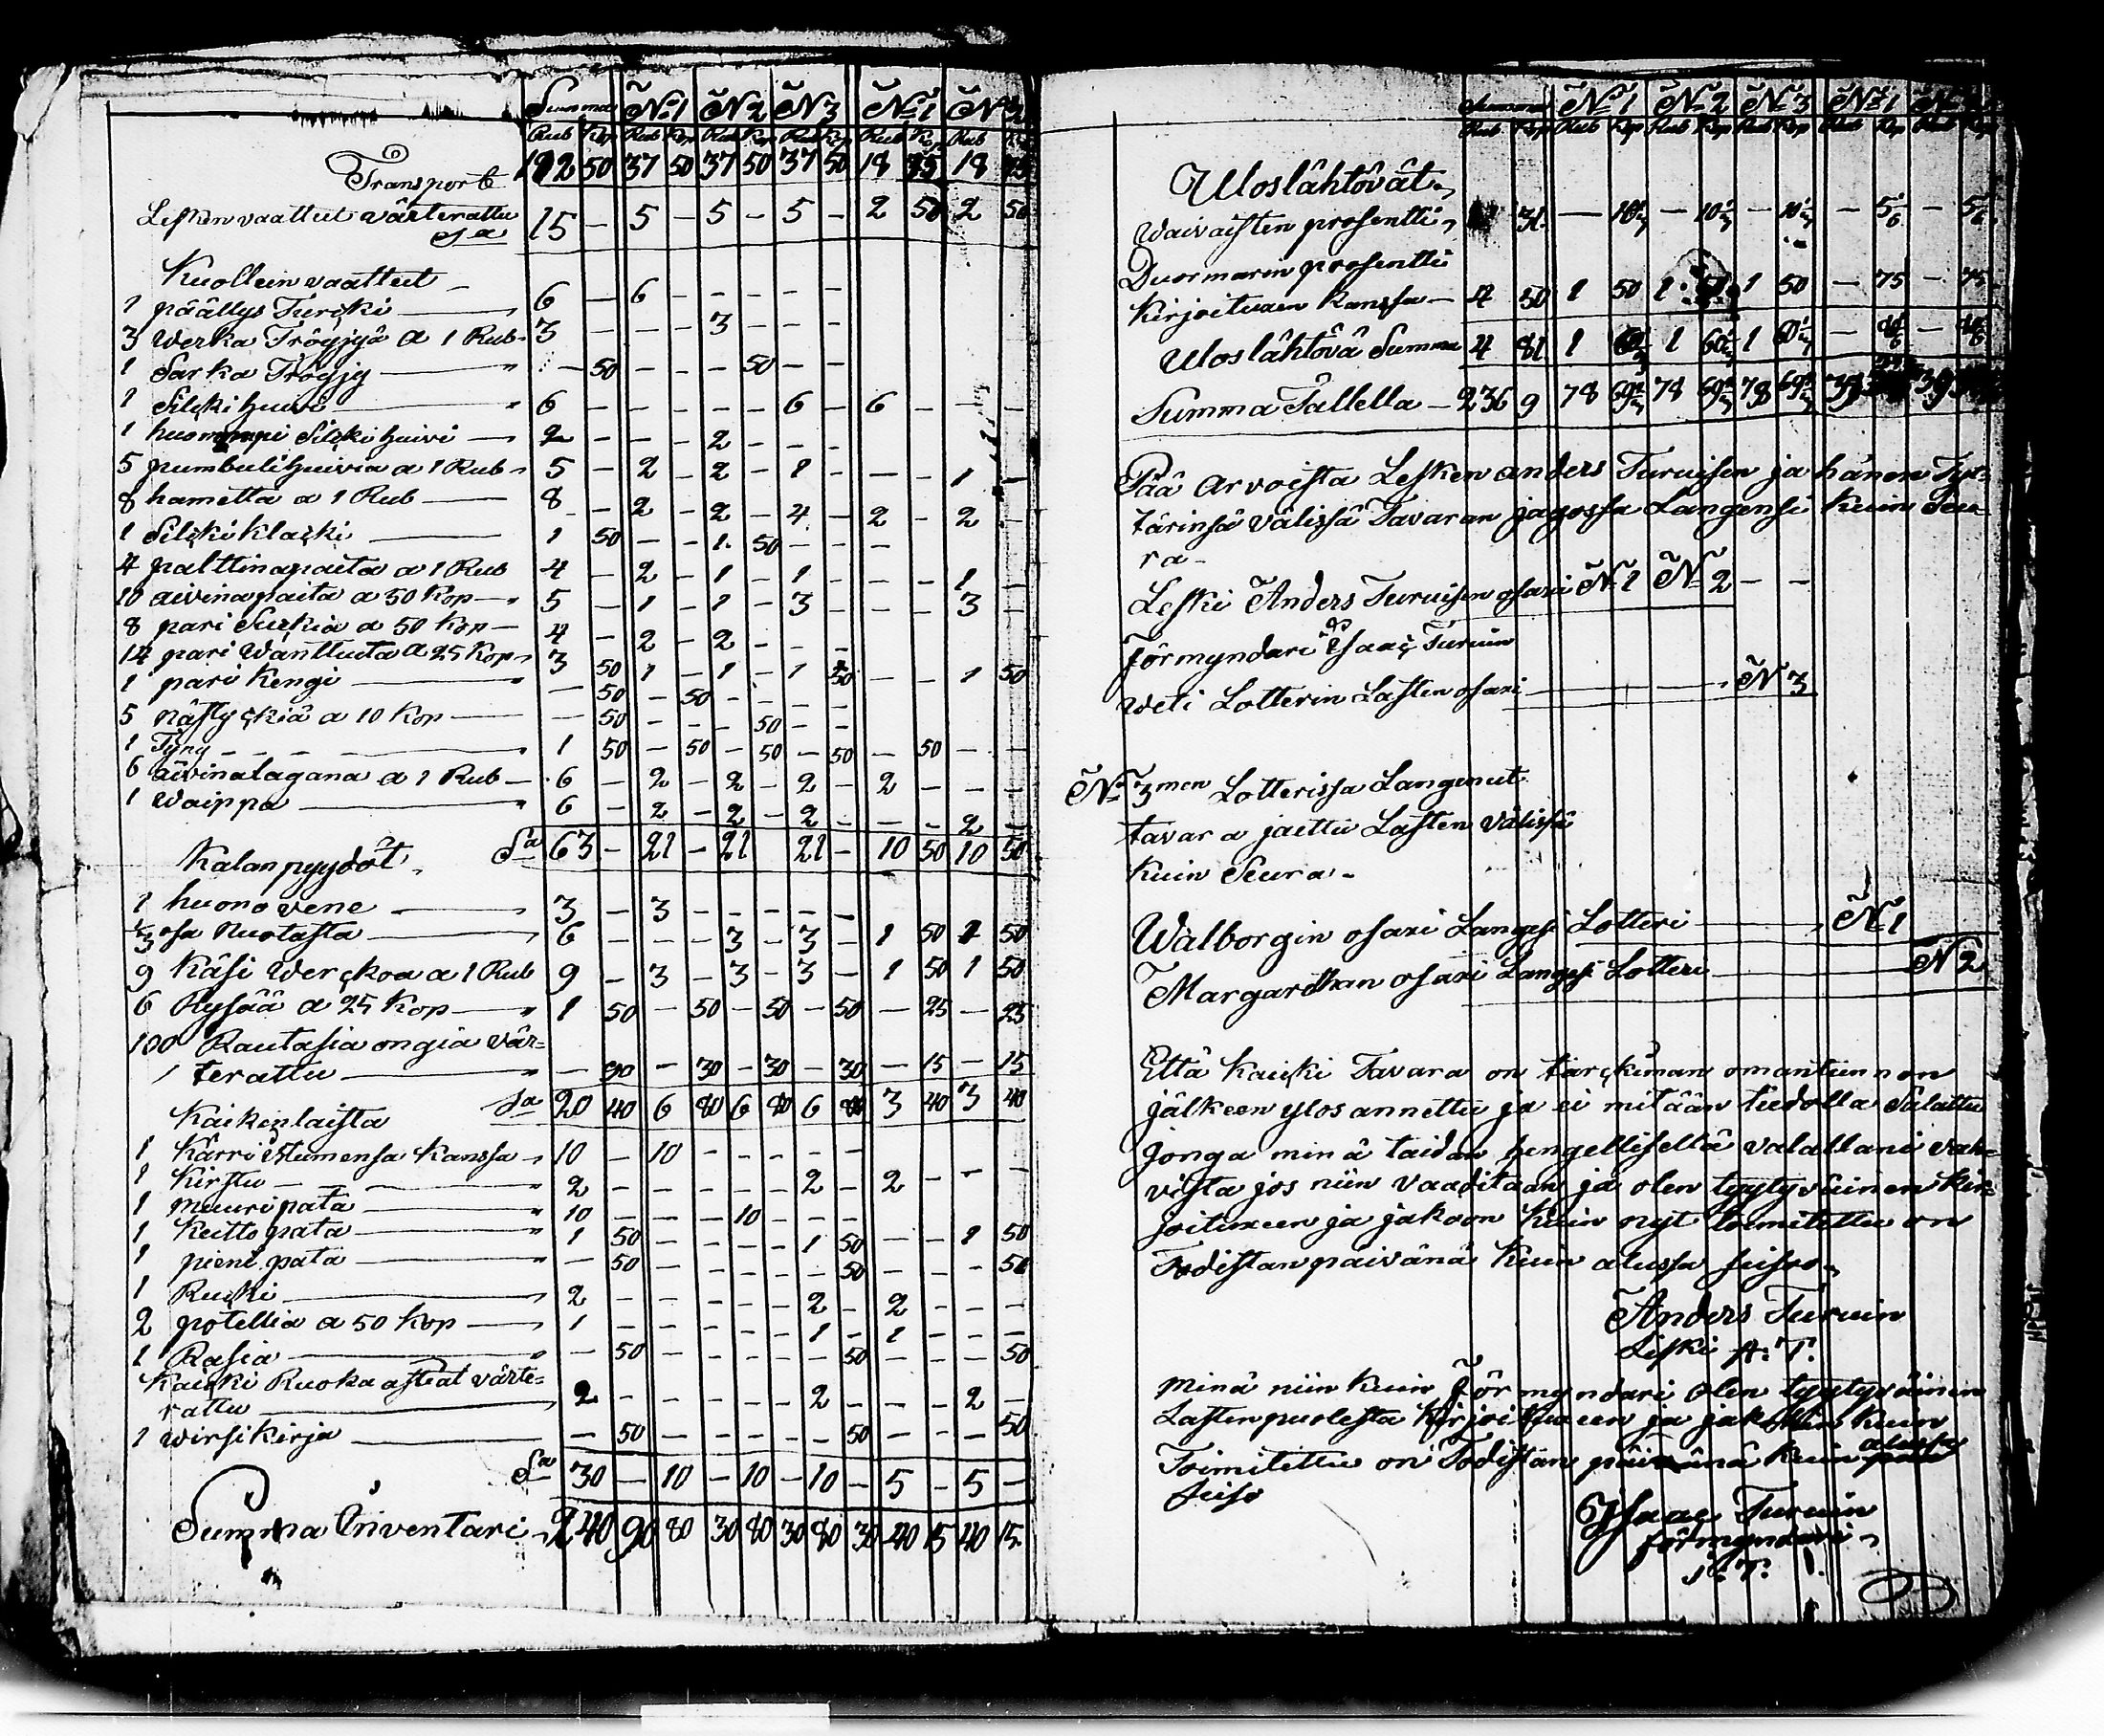 Summa Nº1 Nº2 Nº3 Nº1 Nº2
Rub Kop Rub Kop Rub Kop Rub Kop Rub Kop Rub
Transport 112 50 37 50 37 50 37 50 18 75 18 75
Lesken vaatteet värterattu 15 — 5 — 5 — 5 — 2 50 2 50
Sa
Kuolleen vaatteet —
1 päällys Turcki — 6 — 6 — — — —
3 Werka Tröyjyä a 1 Rub. 3 — — — 3 — — —
1 Sarka Tröyjy — — 50 — — — 50 — —
1 Silcki huivi — 6 — — — — — 6 — 6 — — —
1 huonompi Silcki huivi — 2 — — — 2 — — —
5 pumbuli huivia a 1 Rub 5 — 2 — 2 — 1 — — — 1 —
8 hametta a 1 Rub — 8 — 2 — 2 — 4 — 2 — 2 —
1 Silcki klacki — 1 50 — — 1 50 — — —
4 palttinapaita a 1 Rub 4 — 2 — 1 — 1 — — — 1 —
10 aivinapaita a 50 Kop — 5 — 1 — 1 — 3 — — — 3 —
8 pari Sukia a 50 Kop — 4 — 2 — 2 — — —
14 pari Wanttuita a 25 Kop 3 50 1 — 1 — 1 50 — — 1 50
1 pari Kengi — — 50 — 50 — — — —
5 näftyckiä a 10 Kop — — 50 — — — 50 — —
1 Tyny — — 1 50 — 50 — 50 — 50 — 50 — —
6 aivinalagana a 1 Rub — 6 — 2 — 2 — 2 — 2 — — —
1 Waippa — 6 — 2 — 2 — 2 — — — 2 —
Sa 63 — 21 — 21 21 — 10 50 10 50
Kalanpyydöt.
1 huono vene — 3 — 3 — — — — —
1/3 osa Nuotasta — 6 — — — 3 — 3 — 1 50 1 50
9 Käsi Werckoa a 1 Rub 9 — 3 — 3 — 3 — 1 50 1 50
6 Rysää a 25 Kop — 1 50 — 50 — 50 — 50 — 25 — 25
100 Rautasia ongia vär=
terattu — — 90 — 30 — 30 — 30 — 15 — 15
Sa 20 40 6 80 6 80 6 80 3 40 3 40
Kaikenlaista
1 Kärri istumensa Kanssa 10 — 10 — — — — —
1 Kirstu — 2 — — — — — 2 — 2 — — —
1 Muuripata — 10 — — — 10 — — —
1 Keittopata — 1 50 — — — — 1 50 — — 1 50
1 pieni pata — — 50 — — — — — 50 — — — 50
1 Rucki — 2 — — — — — 2 — 2 — — —
2 potellia a 50 Kop — 1 — — — — — 1 — 1 — — —
1 Rasia — — 50 — — — — — 50 — — — 50
Kaicki Ruoka astiat värte=
rattu — 2 — — — — — 2 — — — 2 —
1 Wirsikirja — — 50 — — — — — 50 — — — 50
Sa 30 — 10 — 10 — 10 — 5 — 5 —
Summa Inventari 240 90 80 30 80 30 80 30 40 15 40 15
Summa Nº1 Nº2 Nº3 Nº1
Rub Kop Rub Kop Rub Kop Rub Kop Rub Kop Rub Kop
Uloslähtövät
Waivaisten prosentti — 31 — 10 1/3 — 10 1/3 — 10 1/3 — 5 1/6 — 5 1/6
Duormarin prosentti
Kirjoituxen Kanssa — 4 50 1 50 1 1 50 — 75 — 75
Uloslähtövä Summa 4 81 1 60 1/3 1 60 1/3 1 60 1/3 — —
Summa Tallella — 236 9 78 69 2/3 78 69 2/3 78 69 2/3 39 39
Pää arvoista Lesken Anders Turuisen ja hänen Tyt=
tärinsä välissä Tavaran jagossa Langensi Kuin Seu=
ra —
Leski Anders Turuisen osaxi Nº1 Nº2 — —
Förmyndari Isaac Turuin
Weti Lotterin Lasten osaxi — Nº3
Nº 3men Lotterissa Langenut
tavara jaettu Lasten välissä
Kuin Seura —
Walborgin osaxi Langesi Lotteri — Nº1
Margarethan osaxi Langesi Lotteri — Nº2
Että kaicki Tavara on tarckiman omantunnon
jälkeen ylosannettu ja ei mitään tiedolla Salattu
jonga minä taidan hengellisellä valallani vah=
vista jos niin vaaditaan ja olen tyytyväinen Kir=
joituxeen ja jakoon Kuin nyt toimitettu on
Todistan päivänä Kuin alussa seiso.
Anders Turuin
Leski A: T.
Minä niin Kuin Förmyndari olen tyytyväinen
Lasten puolesta Kirjoituxeen ja jakohon Kuin
Toimitettu on Todistan päivänä Kuin alussa
Seiso
Isaac Turuin
förmyndari
I: T.